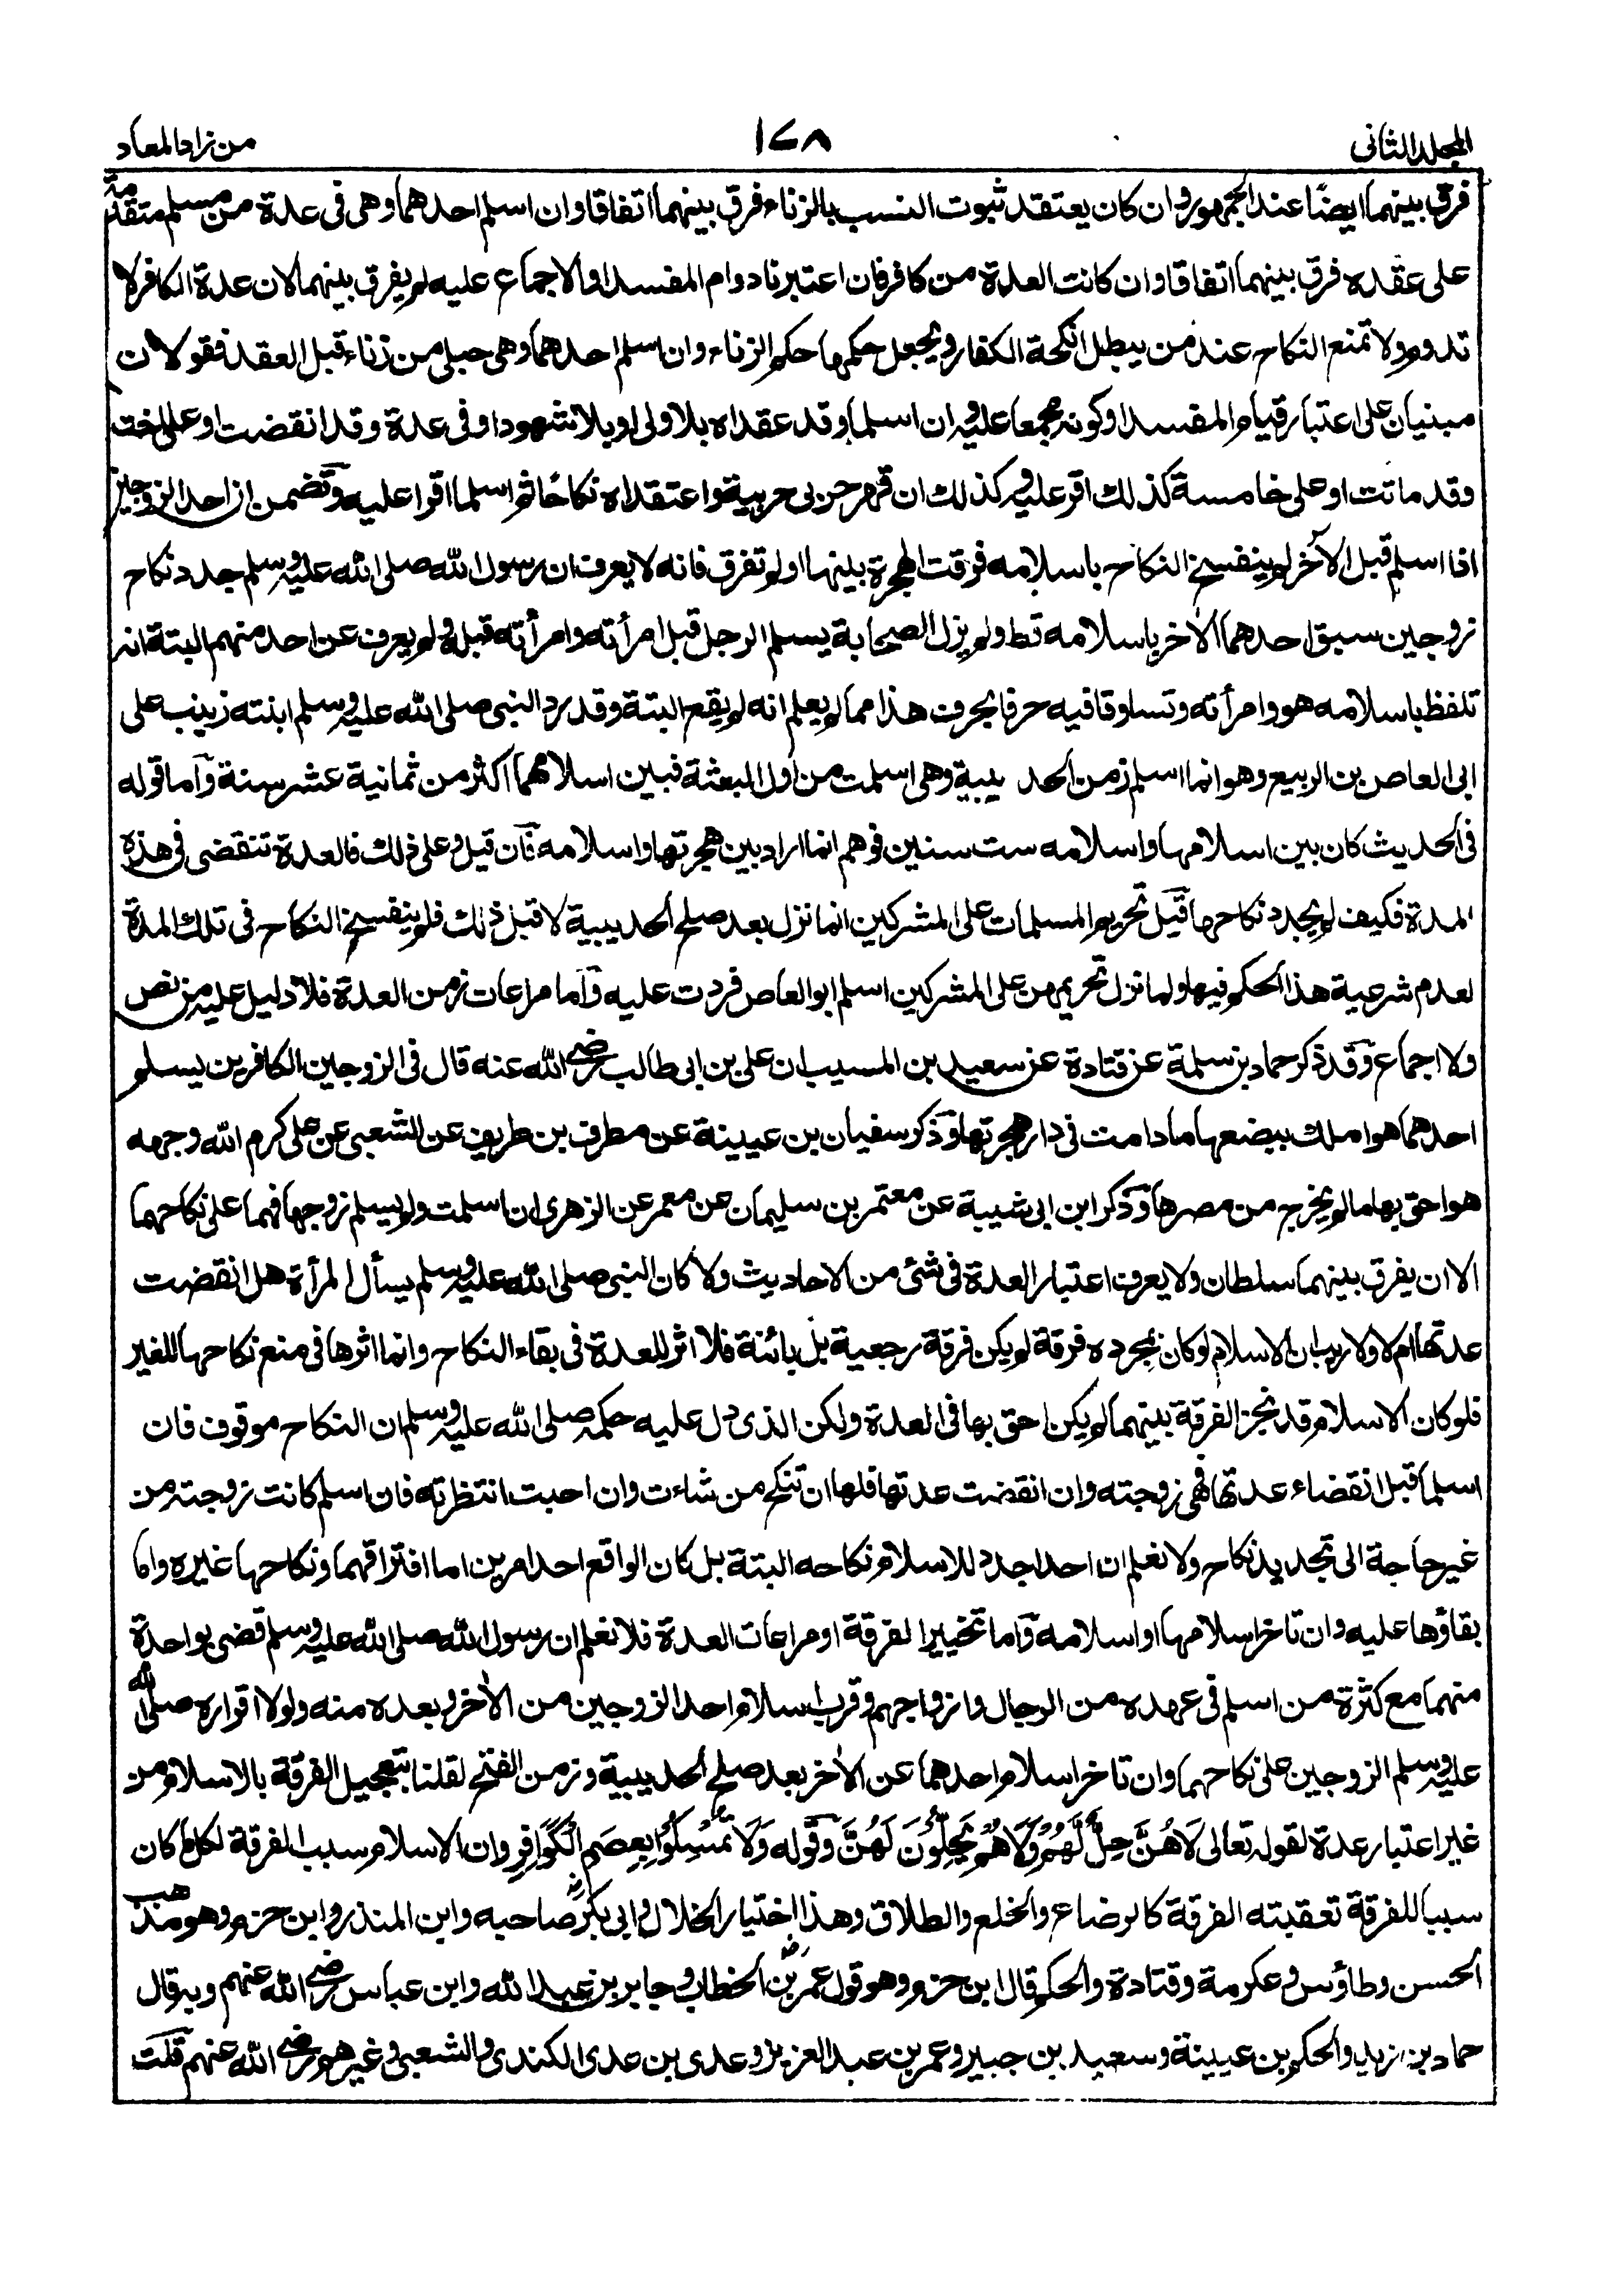 المجلد الثانى ١٧٨ من زاد المعاد
فرق بينهما ايضًا عند الجمهور وان كان يعتقد ثبوت النسب بالزناء فرق بينهما اتفاقا وان اسلم احدهما وهى فى عدة من مسلم متقدمة
على عقده فرق بينهما اتفاقا وان كانت العدة من كافر فان اعتبرنا دوام المفسد او الاجماع عليه لم يفرق بينهما لان عدة الكافر لا
تدوم ولا تمنع النكاح عند من يبطل انكحة الكفار ويجعل حكمها حكم الزناء وان اسلم احدهما وهى حبلى من زناء قبل العقد فقولان
مبنيان على اعتبار قيام المفسد او كونه مجمعا عليه وان اسلما وقد عقداه بلا ولى او بلا شهود او فى عدة وقد انقضت او على اخت
وقد ماتت او على خامسة كذلك اقر عليه وكذلك ان قهر حربى حربية واعتقداه نكاحًا ثم اسلما اقرا عليه وتضمن ان احد الزوجين
اذا اسلم قبل الآخر لم ينفسخ النكاح باسلامه فرقت الهجرة بينهما او لم تفرق فانه لا يعرف ان رسول الله صلى الله عليه وسلم جدد نكاح
زوجين سبق احدهما الآخر باسلامه قط ولم يزل الصحابة يسلم الرجل قبل امرأته وامرأته قبله ولم يعرف عن احد منهم البتة انه
تلفظ باسلامه هو وامرأته وتساوقا فيه حرفا بحرف هذا مما لم يعلم انه لم يقع البتة وقد رد النبى صلى الله عليه وسلم ابنته زينب على
ابى العاص بن الربيع وهو انما اسلم زمن الحديبية وهى اسلمت من اول البعثة فبين اسلامهما اكثر من ثمانية عشر سنة وآما قوله
فى الحديث كان بين اسلامها واسلامه ست سنين فوهم انما اراد بين هجرتها واسلامه فآن قيل وعلى ذلك فالعدة تنقضى فى هذه
المدة فكيف لم يجدد نكاحها قيل تحريم المسلمات على المشركين انما نزل بعد صلح الحديبية لا قبل ذلك فلم ينفسخ النكاح فى تلك المدة
لعدم شرعية هذا الحكم فيها ولما نزل تحريمهن على المشركين اسلم ابو العاص فردت عليه وآما مراعات زمن العدة فلا دليل عليه من نص
ولا اجماع وقد ذكر حماد بن سلمة عن قتادة عن سعيد بن المسيب ان على بن ابى طالب رضى الله عنه قال فى الزوجين الكافرين يسلم
احدهما هو املك ببضعها ما دامت فى دار هجرتها وذكر سفيان بن عيينة عن مطرف بن طريف عن الشعبى عن على كرم الله وجهه
هو احق بها مالم يخرج من مصرها وذكر ابن ابى شيبة عن معتمر بن سليمان عن معمر عن الزهرى ان اسلمت ولم يسلم زوجها فهما على نكاحهما
الا ان يفرق بينهما سلطان ولا يعرف اعتبار العدة فى شئ من الاحاديث ولا كان النبى صلى الله عليه وسلم يسأل المرأة هل انقضت
عدتها ام لا ولا ريب ان الاسلام لو كان بمجرده فرقة لم يكن فرقة رجعية بل بائنة فلا اثر للعدة فى بقاء النكاح وانما اثرها فى منع نكاحها للغير
فلو كان الاسلام قد نجز الفرقة بينهما لم يكن احق بها فى العدة ولكن الذى دل عليه حكمه صلى الله عليه وسلم ان النكاح موقوف فان
اسلما قبل انقضاء عدتها فهى زوجته وان انقضت عدتها فلها ان تنكح من شاءت وان احبت انتظرته فان اسلم كانت زوجته من
غير حاجة الى تجديد نكاح ولا نعلم ان احدا جدد للاسلام نكاحه البتة بل كان الواقع احد امرين اما افتراقهما ونكاحها غيره واما
بقاؤها عليه وان تاخر اسلامها او اسلامه وآما تخيير الفرقة او مراعات العدة فلا نعلم ان رسول الله صلى الله عليه وسلم قضى بواحدة
منهما مع كثرة من اسلم فى عهده من الرجال وازواجهم وقرب اسلام احد الزوجين من الآخر وبعده منه ولولا اقراره صلى الله
عليه وسلم الزوجين على نكاحهما وان تاخر اسلام احدهما عن الآخر بعد صلح الحديبية وزمن الفتح لقلنا بتعجيل الفرقة بالاسلام من
غير اعتبار عدة لقوله تعالى لَا هُنَّ حِلٌّ لَّهُمْ وَلَا هُمْ يَحِلُّوْنَ لَهُنَّ وقوله وَلَا تُمْسِكُوْا بِعِصَمِ الْكَوَافِرِ وان الاسلام سبب الفرقة لكل ما كان
سببا للفرقة تعقبته الفرقة كالرضاع والخلع والطلاق وهذا اختيار الخلال وابى بكر صاحبه وابن المنذر وابن حزم وهو مذهب
الحسن وطاؤس وعكرمة وقتادة والحكم قال ابن حزم وهو قول عمر بن الخطاب وجابر بن عبد الله وابن عباس رضى الله عنهم وبه قال
حماد بن زيد والحكم بن عيينة وسعيد بن جبير وعمر بن عبد العزيز وعدى بن عدى الكندى والشعبى وغيرهم رضى الله عنهم قلت